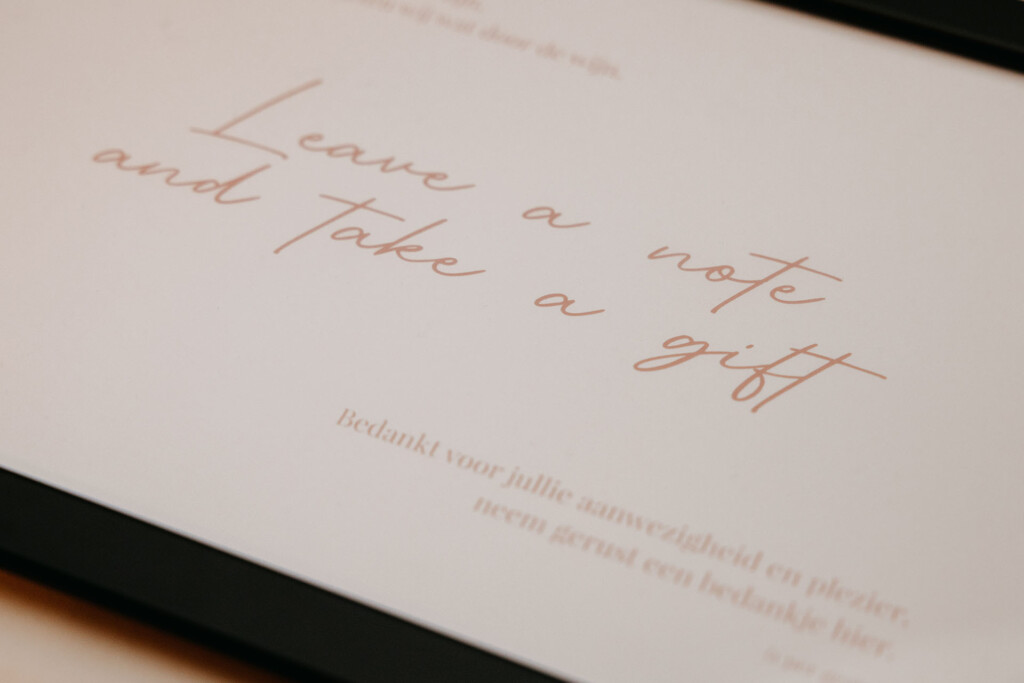 wat door de wijn.
Leave a note
and take a gift
Bedankt voor jullie aanwezigheid en plezier,
neem gerust een bedankje hier.